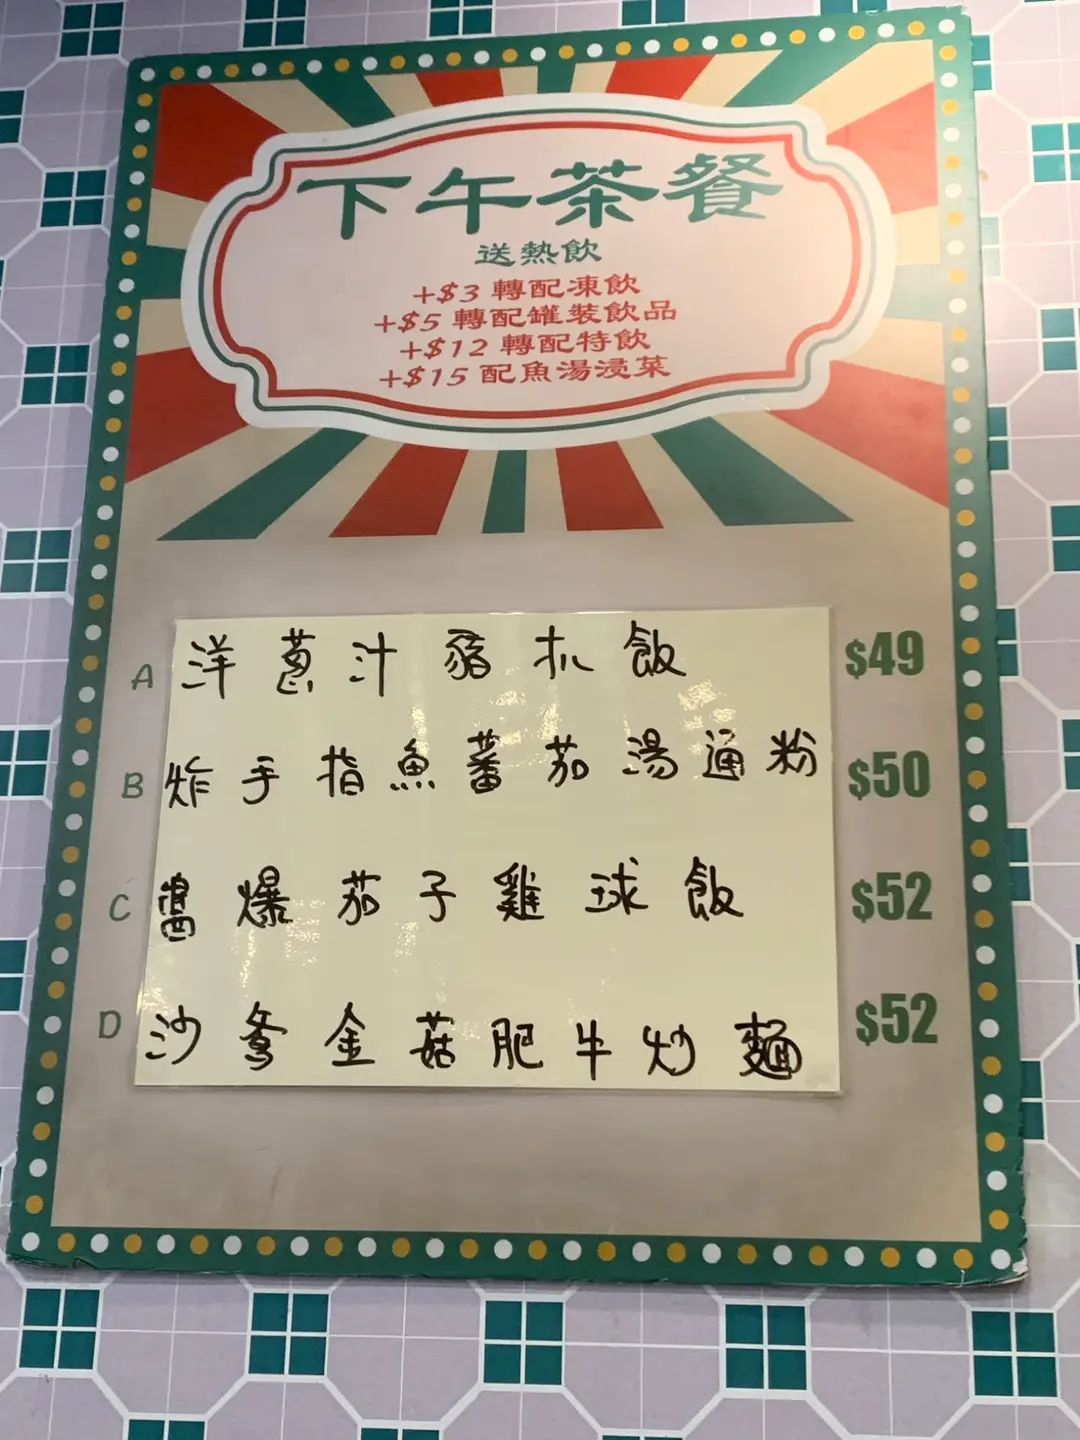 下午茶餐
送熱飲
+$3 轉配凍飲
+$5 轉配罐裝飲品
+$12 轉配特飲
+$15 配魚湯浸菜
A 洋葱汁豬扒飯 $49
B 炸手指魚蕃茄湯通粉 $50
C 醬爆茄子雞球飯 $52
D 沙爹金菇肥牛炒麵 $52